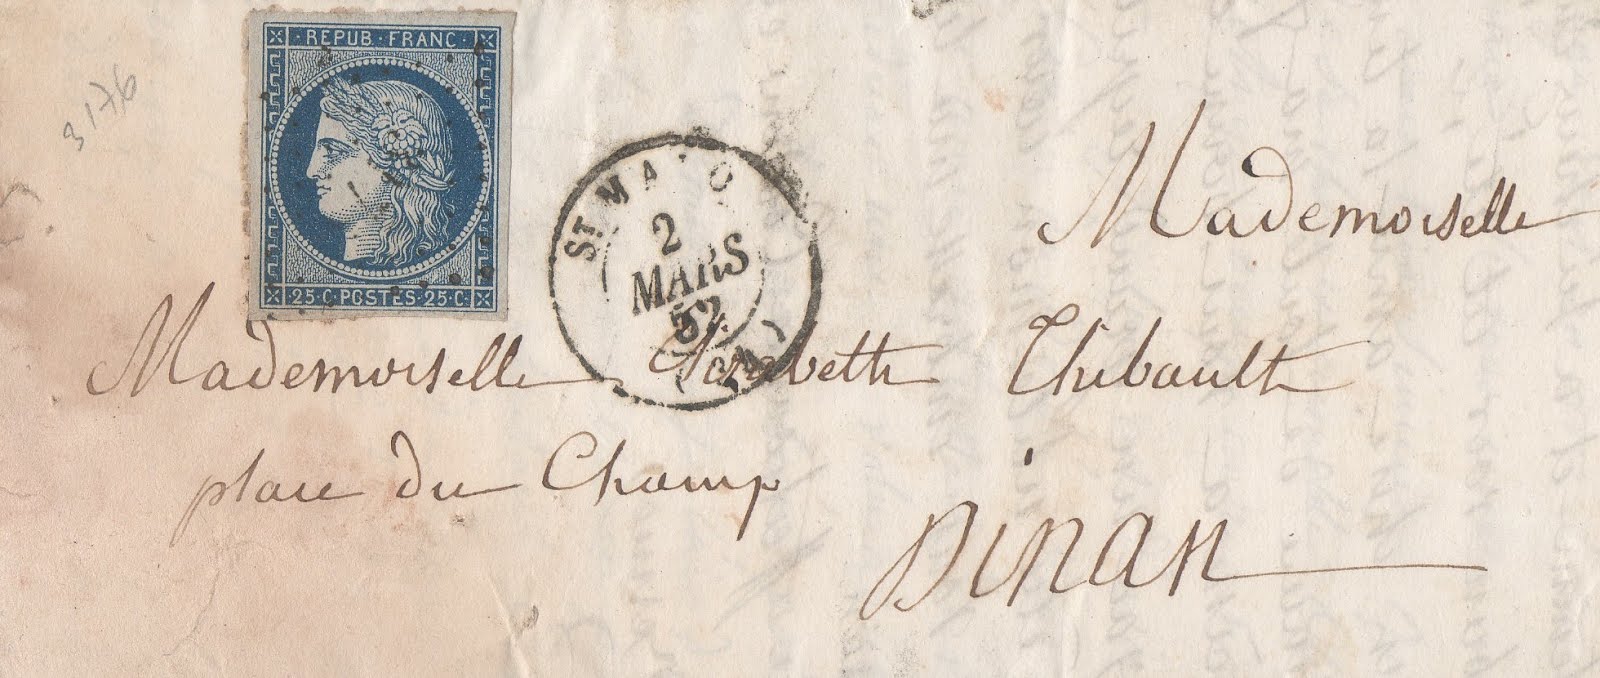 3176
· REPUB · FRANC ·
25 · C · POSTES · 25 · C ·
ST MA O
2
MARS
52
Mademoiselle
Mademoiselle Thibault
place du Champ
Dinan